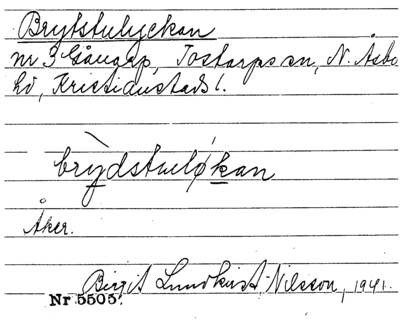 Brytstulyckan
nr 3 Gånarp, Tostarps sn, N. Åsbo
hd, Kristianstads l.
brỳdstuløkan
Åker.
Birgit Lundkvist-Nilsson, 1941.
Nr 5505.